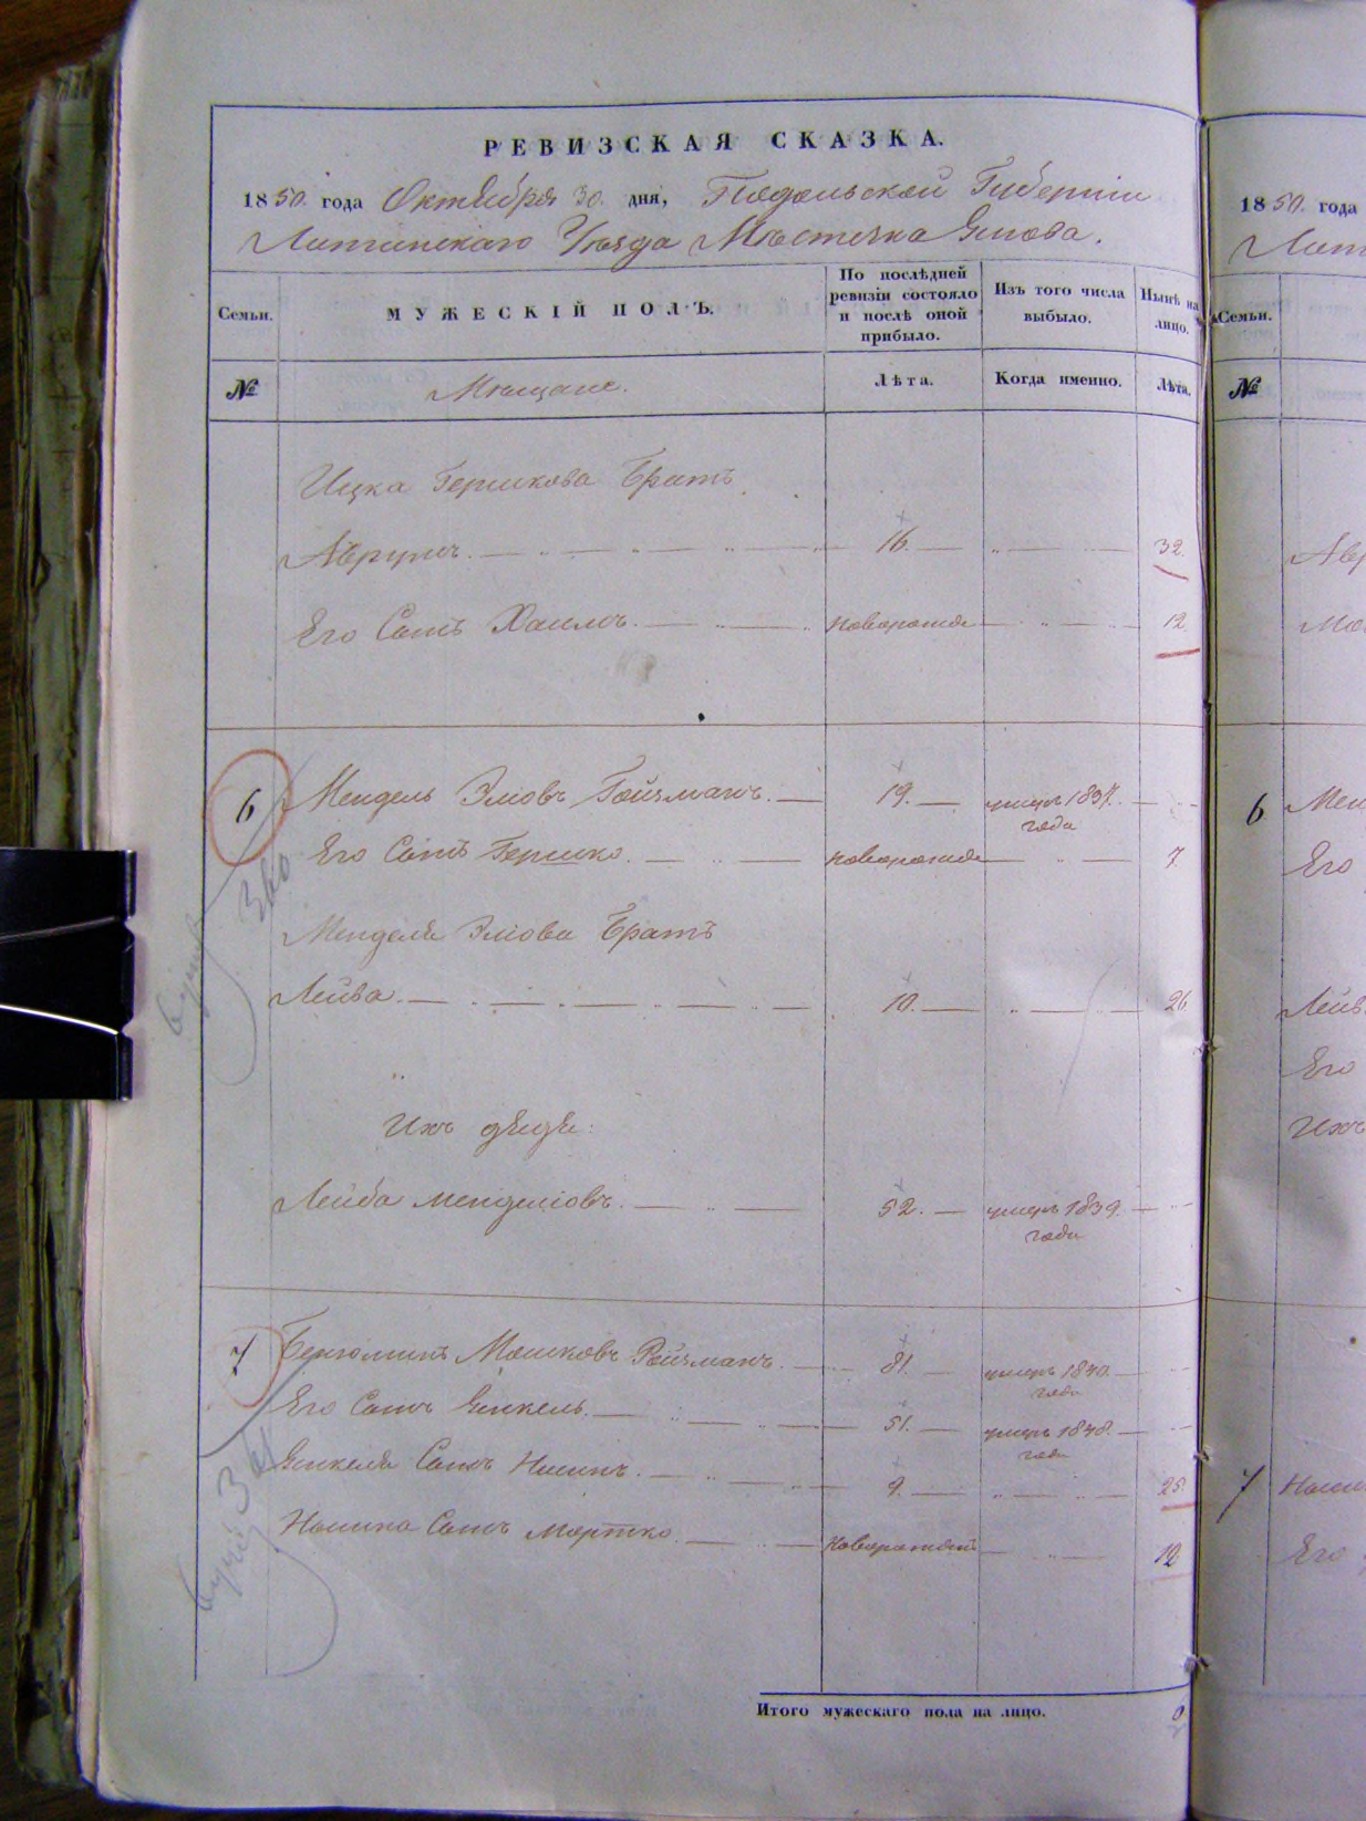 РЕВИЗСКАЯ СКАЗКА.
1850. года Октября 30. дня, Подольской Губерніи
Литинскаго Уѣзда Мѣстечка Янова.
Семьи.
МУЖЕСКІЙ ПОЛЪ.
По послѣдней ревизіи состояло и послѣ оной прибыло.
Изъ того числа выбыло.
Нынѣ на лицо.
№
Мѣщане.
Лѣта.
Когда именно.
Лѣта.
Ицка Гершкова Братъ
Аврумъ. 16. 32.
Его Сынъ Хаимъ. новорожде 12.
6 Мендель Эліовъ Ройзманъ. 19. умеръ 1837. года
Его Сынъ Гершко. новорожде 7.
Менделя Эліова Братъ
Лейба. 10. 26
Ихъ дядя:
Лейба Менделіовъ. 52. умеръ 1839. года
7 Беніоминъ Мошковъ Ройзманъ. 81. умеръ 1840. года
Его Сынъ Янкель. 51. умеръ 1848. года
Янкеля Сынъ Нисинъ. 9. 25.
Сынъ Мортко. новорожден 12
Итого мужескаго пола на лицо. 6
1850. года
Лит
Семьи.
№
Авр
6 Мен
Его
Лейб
Его
Ихъ
7
Его